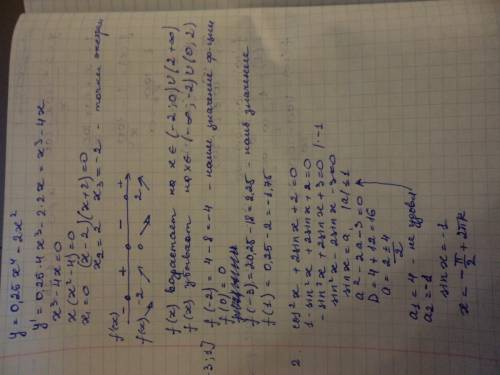 y = 0,25x⁴ - 2x²
y' = 0,25·4x³ - 2·2x = x³ - 4x
x³ - 4x = 0
x(x² - 4) = 0
x₁ = 0 (x - 2)(x + 2) = 0
x₂ = 2 x₃ = -2 - точки экстрем
f'(x) - + - +
f(x) -2 0 2
f(x) возрастает на x ∈ (-2; 0) ∪ (2 +∞)
f(x) убывает на x ∈ (-∞; -2) ∪ (0, 2)
-3; 1] f(-2) = 4 - 8 = -4 - наим значение ф-ции
f(0) = 0
f(-3) = 20,25 - 18 = 2,25 - наиб значение
f(1) = 0,25 - 2 = -1,75
2 cos²x - 2sinx + 2 = 0
1 - sin²x + 2sinx + 2 = 0
- sin²x + 2sinx + 3 = 0 /·-1
sin²x - 2sinx - 3 = 0
sinx = a, |a| ≤ 1
a² - 2a - 3 = 0
D = 4 + 12 = 16
a = 2 ± 4
2
a₁ = 4 - не удовл
a₂ = -1
sinx = -1
x = -π/2 + 2πk